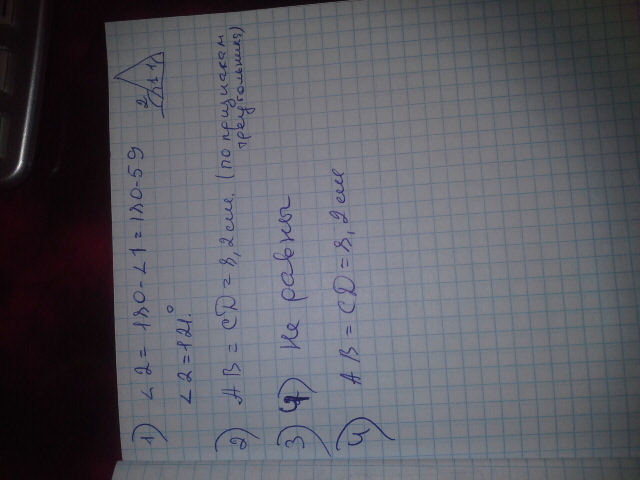 1) ∠2 = 180 - ∠1 = 180-59
∠2 = 121°.
2
1
2) AB = CD = 8,2 см. (по признакам
треугольника)
3) Не равны
4) AB = CD = 8,2 см